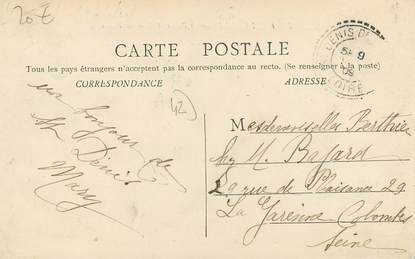 20 €
CARTE POSTALE
Tous les pays étrangers n'acceptent pas la correspondance au recto. (Se renseigner à la poste)
CORRESPONDANCE
ADRESSE
ST DENIS
9
09
LOIRE
42
un bonjour de
St Denis
Mary
Mesdemoiselles Berthier
chez M. Bajard
29 rue de Plaisance 29
La Garenne Colombes
Seine